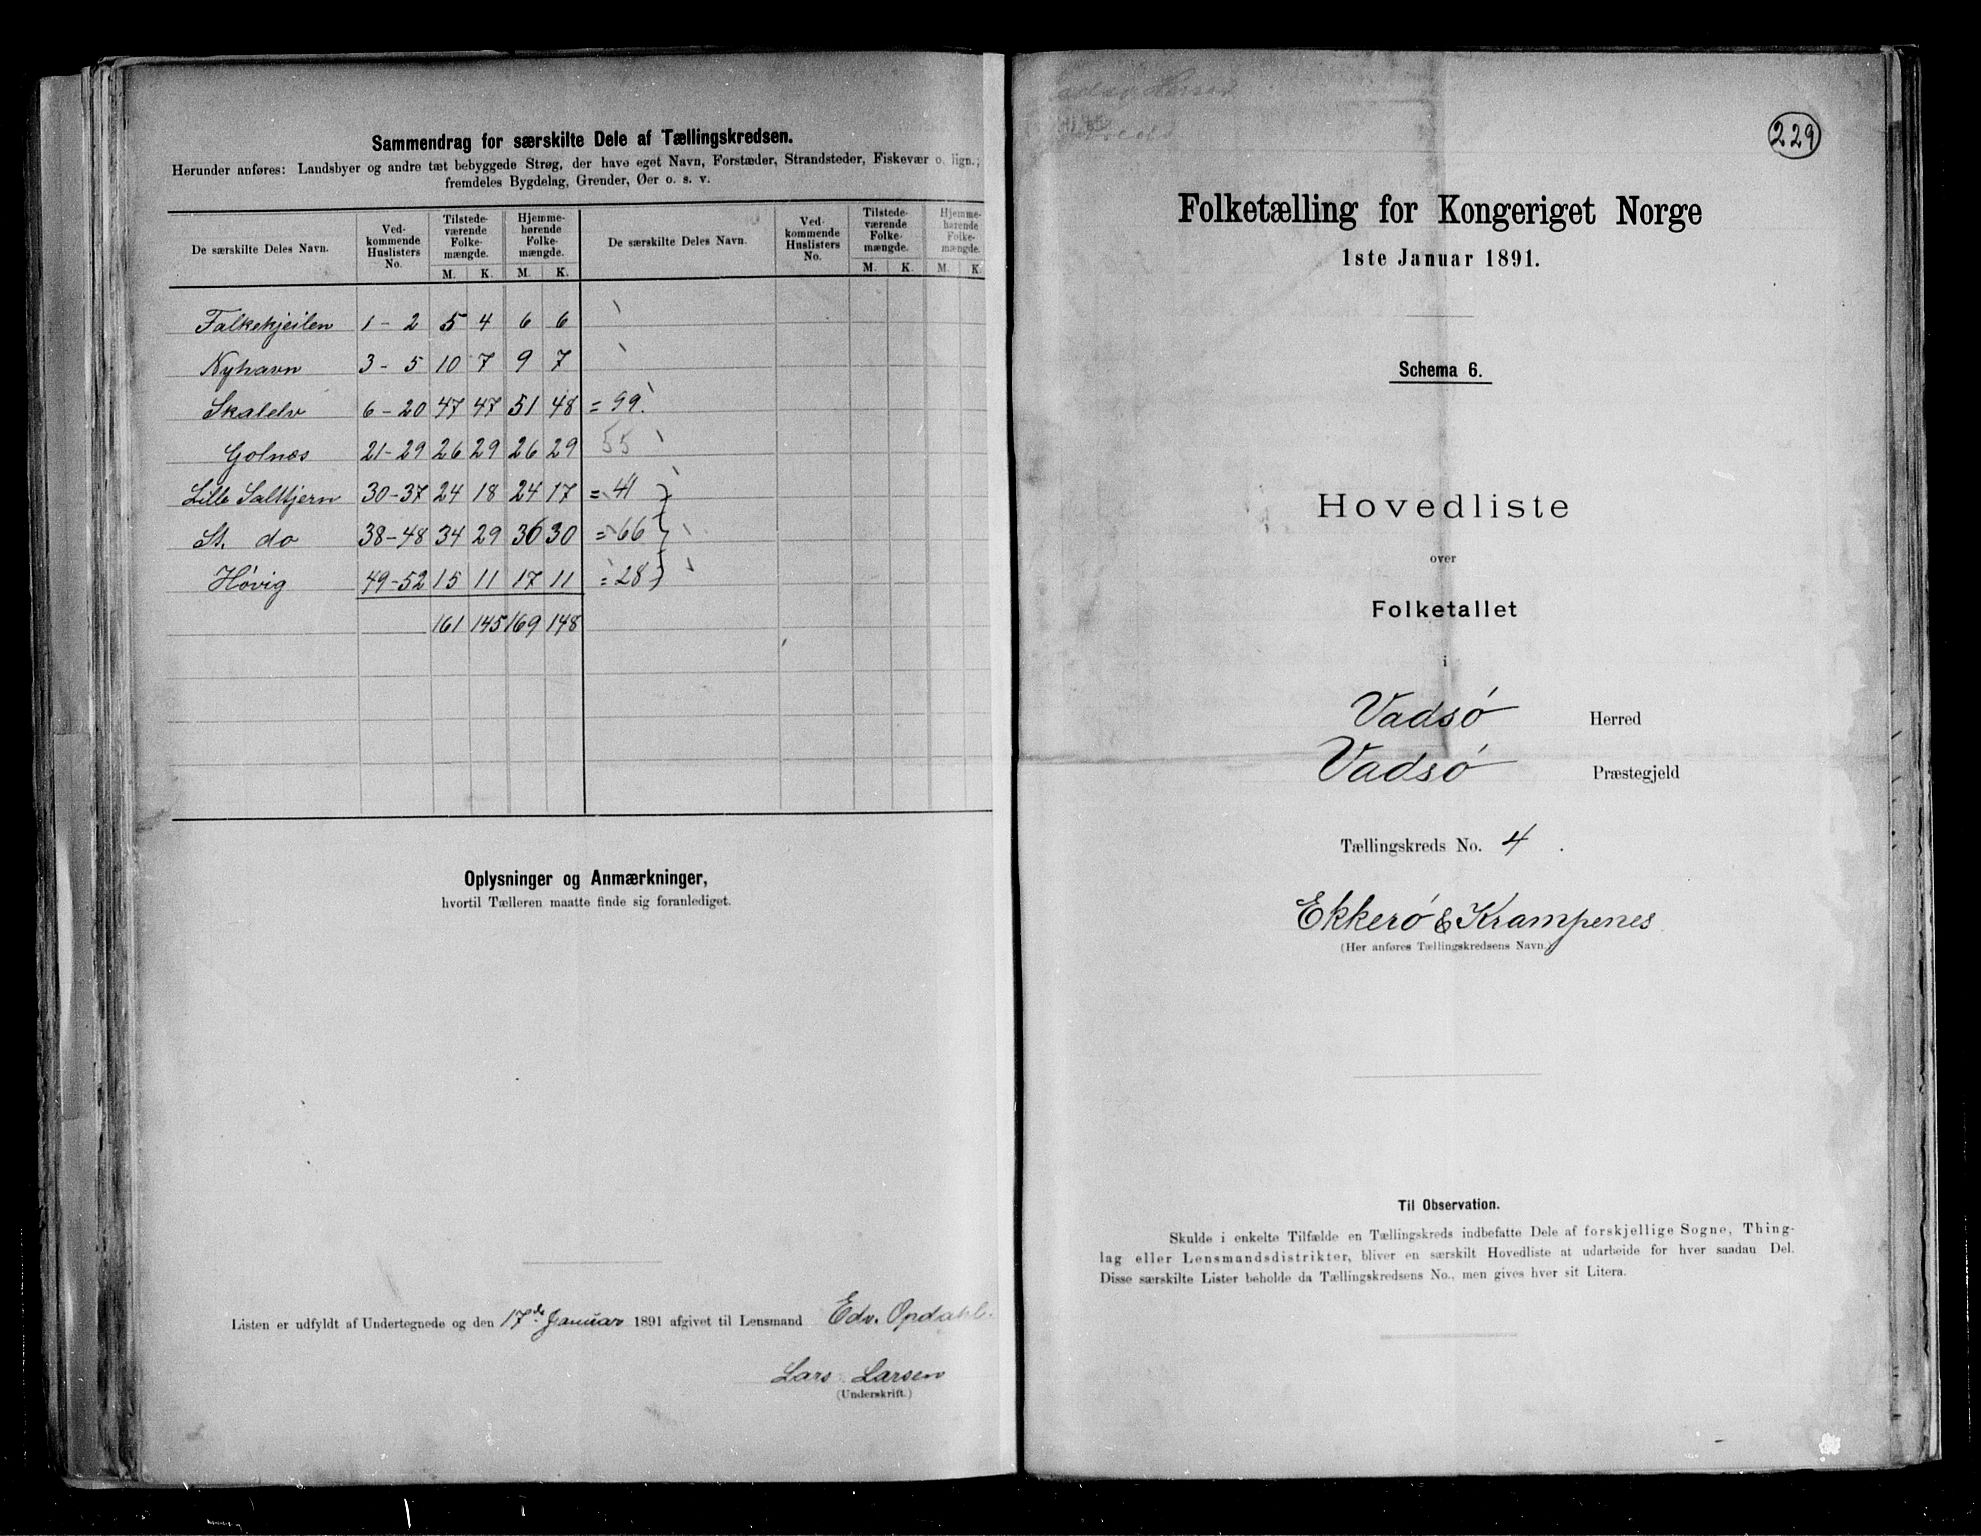 Sammendrag for særskilte Dele af Tællingskredsen.
Herunder anføres: Landsbyer og andre tæt bebyggede Strøg, der have eget Navn, Forstæder, Strandsteder, Fiskevær o. lign.;
fremdeles Bygdelag, Grender, Øer o. s. v.
De særskilte Deles Navn. Ved-kommende Huslisters No. Tilstede-værende Folke-mængde. Hjemme-hørende Folke-mængde. De særskilte Deles Navn. Ved-kommende Huslisters No. Tilstede-værende Folke-mængde. Hjemme-hørende Folke-mængde.
M. K. M. K. M. K. M. K.
Falkekjeilen 1 - 2 5 4 6 6
Nyhavn 3 - 5 10 7 9 7
Skalelv 6 - 20 47 47 51 48 = 99
Golnæs 21 - 29 26 29 26 29 55
Lille Saltjern 30 - 37 24 18 24 17 = 41
St. do 38 - 48 34 29 36 30 = 66
Høvig 49 - 52 15 11 17 11 = 28
161 145 169 148
Oplysninger og Anmærkninger,
hvortil Tælleren maatte finde sig foranlediget.
Listen er udfyldt af Undertegnede og den 17de Januar 1891 afgivet til Lensmand Edv. Opdahl.
Lars Larsen
(Underskrift.)
229
Folketælling for Kongeriget Norge
1ste Januar 1891.
Schema 6.
Hovedliste
over
Folketallet
i
Vadsø Herred
Vadsø Præstegjeld
Tællingskreds No. 4.
Ekkerø & Krampenes
(Her anføres Tællingskredsens Navn.)
Til Observation.
Skulde i enkelte Tilfælde en Tællingskreds indbefatte Dele af forskjellige Sogne, Thing-
lag eller Lensmandsdistrikter, bliver en særskilt Hovedliste at udarbeide for hver saadan Del.
Disse særskilte Lister beholde da Tællingskredsens No., men gives hver sit Litera.